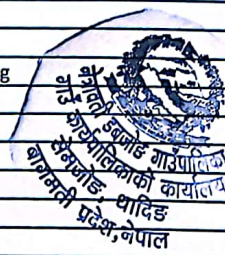 g
नेत्रावती डबजोङ गाउँपालिका
गाउँ कार्यपालिकाको कार्यालय
सेमजोङ, धादिङ
बागमती प्रदेश, नेपाल